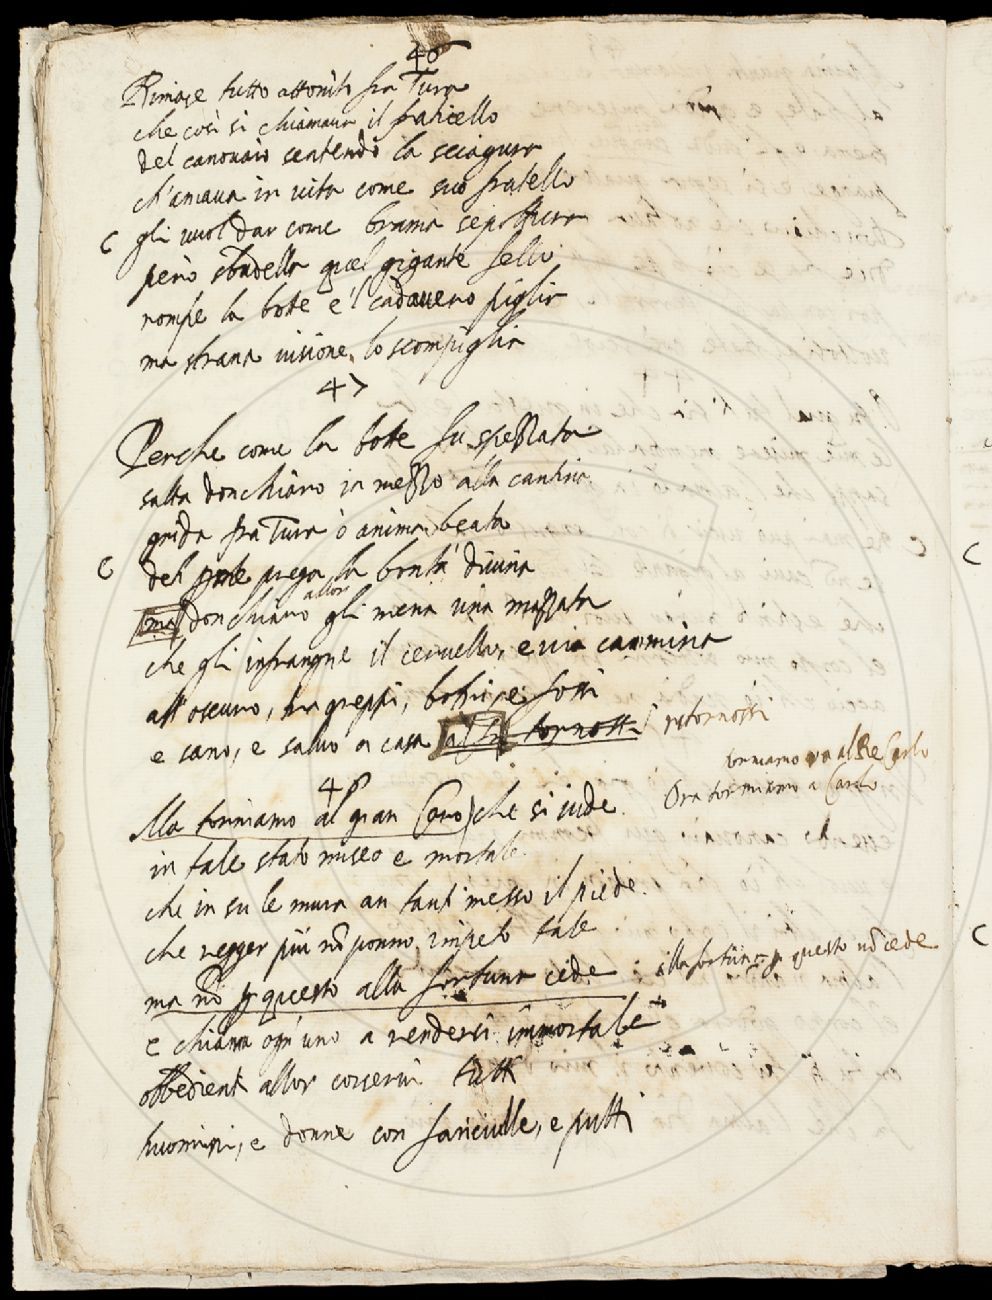 46
Rimase tutto attonito fra Tura
che così si chiamava il fraticello
del canovaio sentendo la sciagura
ch'amava in vita come suo fratello
C gli vuol dar come brama sepoltura
però quel gigante felli
rompe la botte e'l cadavero piglia
ma strana visione lo scompiglia
47
Perche come la botte fu spezzata
salta don chiaro in mezzo alla cantina
grida fra Tura ò anima beata
C deh prega la bontà divina
ma don chiaro allor gli mena una mazzata
che gli infrangne il cervello, e via cammina
all'oscuro, tra greppi, e fossi
e sano, e salvo a casa tornossi ritornossi
torniamo ora al Re Carlo
48
Ora torniamo a Carlo
Ma torniamo al gran Carlo che si vede
in tale stato misero e mortale
che in su le mura an tanti messo il piede
che regger più nõ ponno impeto tale
ma nõ p questo alla fortuna cede alla fortuna p questo nõ cede
e chiama ogn'uno a rendersi immortale
obbedienti allor corserui tutti
huomini, e donne con fanciulle, e putti